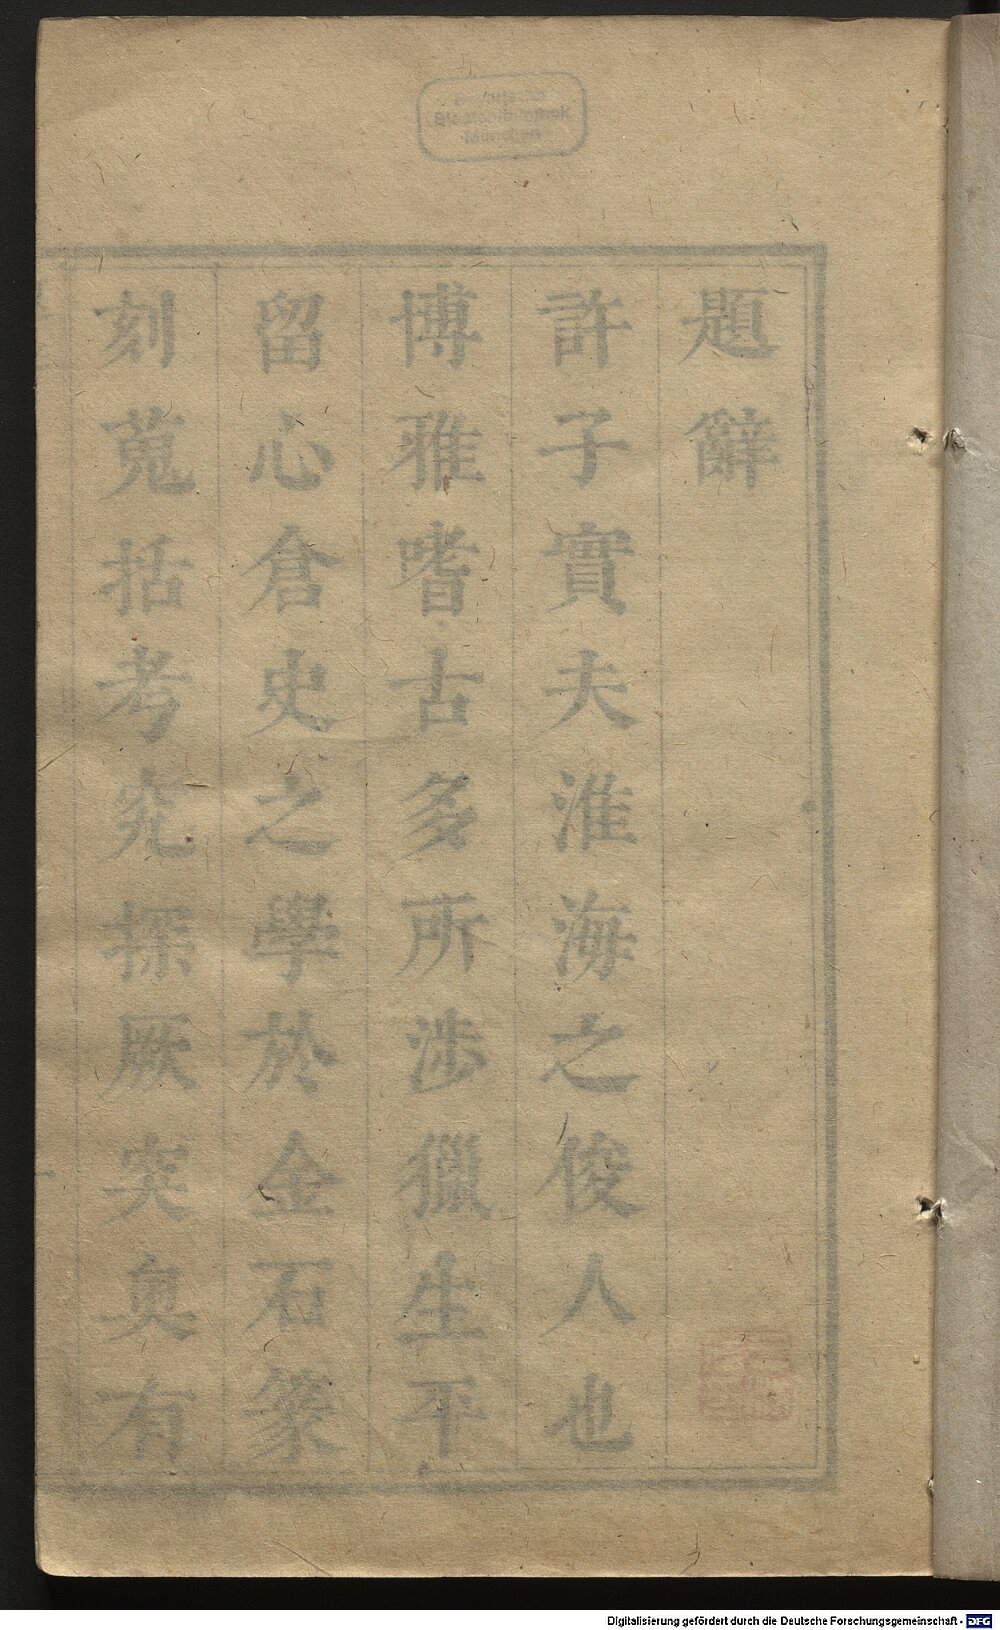 題辭
許子實夫淮海之俊人也
博雅嗜古多所涉獵生平
留心倉史之學於金石篆
刻蒐括考究探厥突奥有
Staatsbibliothek
München
Digitalisierung gefördert durch die Deutsche Forschungsgemeinschaft - DFG